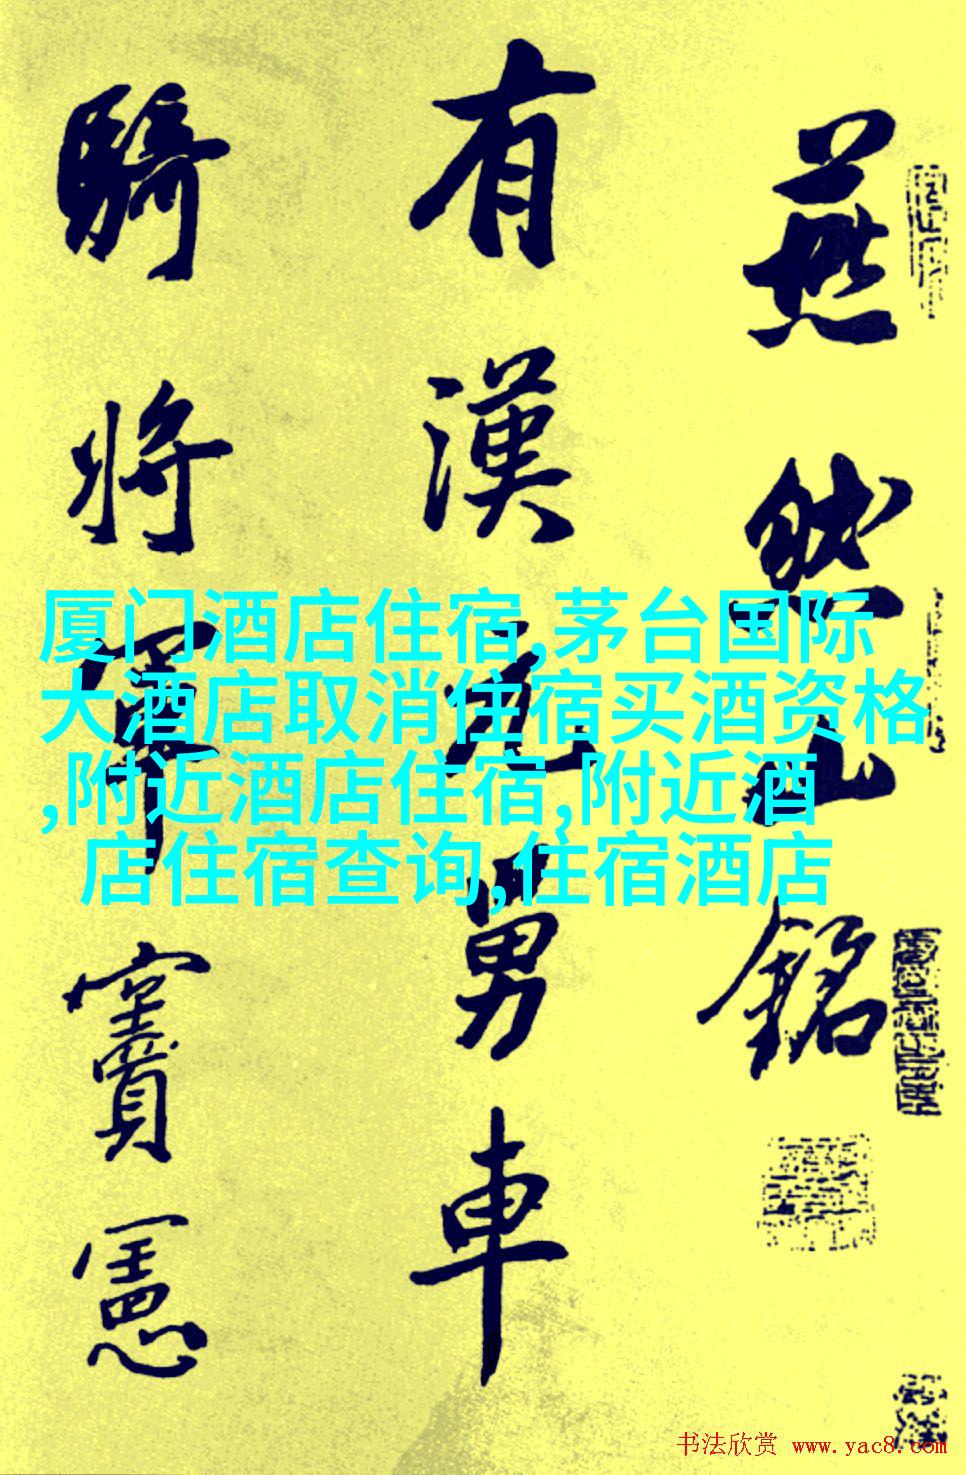 燕然山銘
有漢元舅車
騎將軍竇憲
厦门酒店住宿,茅台国际
大酒店取消住宿买酒资格
,附近酒店住宿,附近酒
店住宿查询,住宿酒店
书法欣赏 www.yac8.com